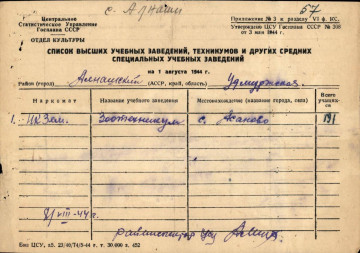 с. Алнаши
57
Центральное
Статистическое Управление
Госплана СССР
ОТДЕЛ КУЛЬТУРЫ
Приложение № 3 к разделу VI ф. 10С.
Утверждено ЦСУ Госплана СССР № 308
от 3 мая 1944 г.
СПИСОК ВЫСШИХ УЧЕБНЫХ ЗАВЕДЕНИЙ, ТЕХНИКУМОВ И ДРУГИХ СРЕДНИХ
СПЕЦИАЛЬНЫХ УЧЕБНЫХ ЗАВЕДЕНИЙ
на 1 августа 1944 г.
Район (город) Алнашский (АССР, край, область) Удмуртская
Наркомат
Название учебного заведения
Местонахождение (название города, села)
Всего учащихся
1. НКЗем. Зоотехникум с. Асаново 191
8/VIII-44 г.
райинспектор ЦСУ
Бланк ЦСУ, 30.000 г. 452